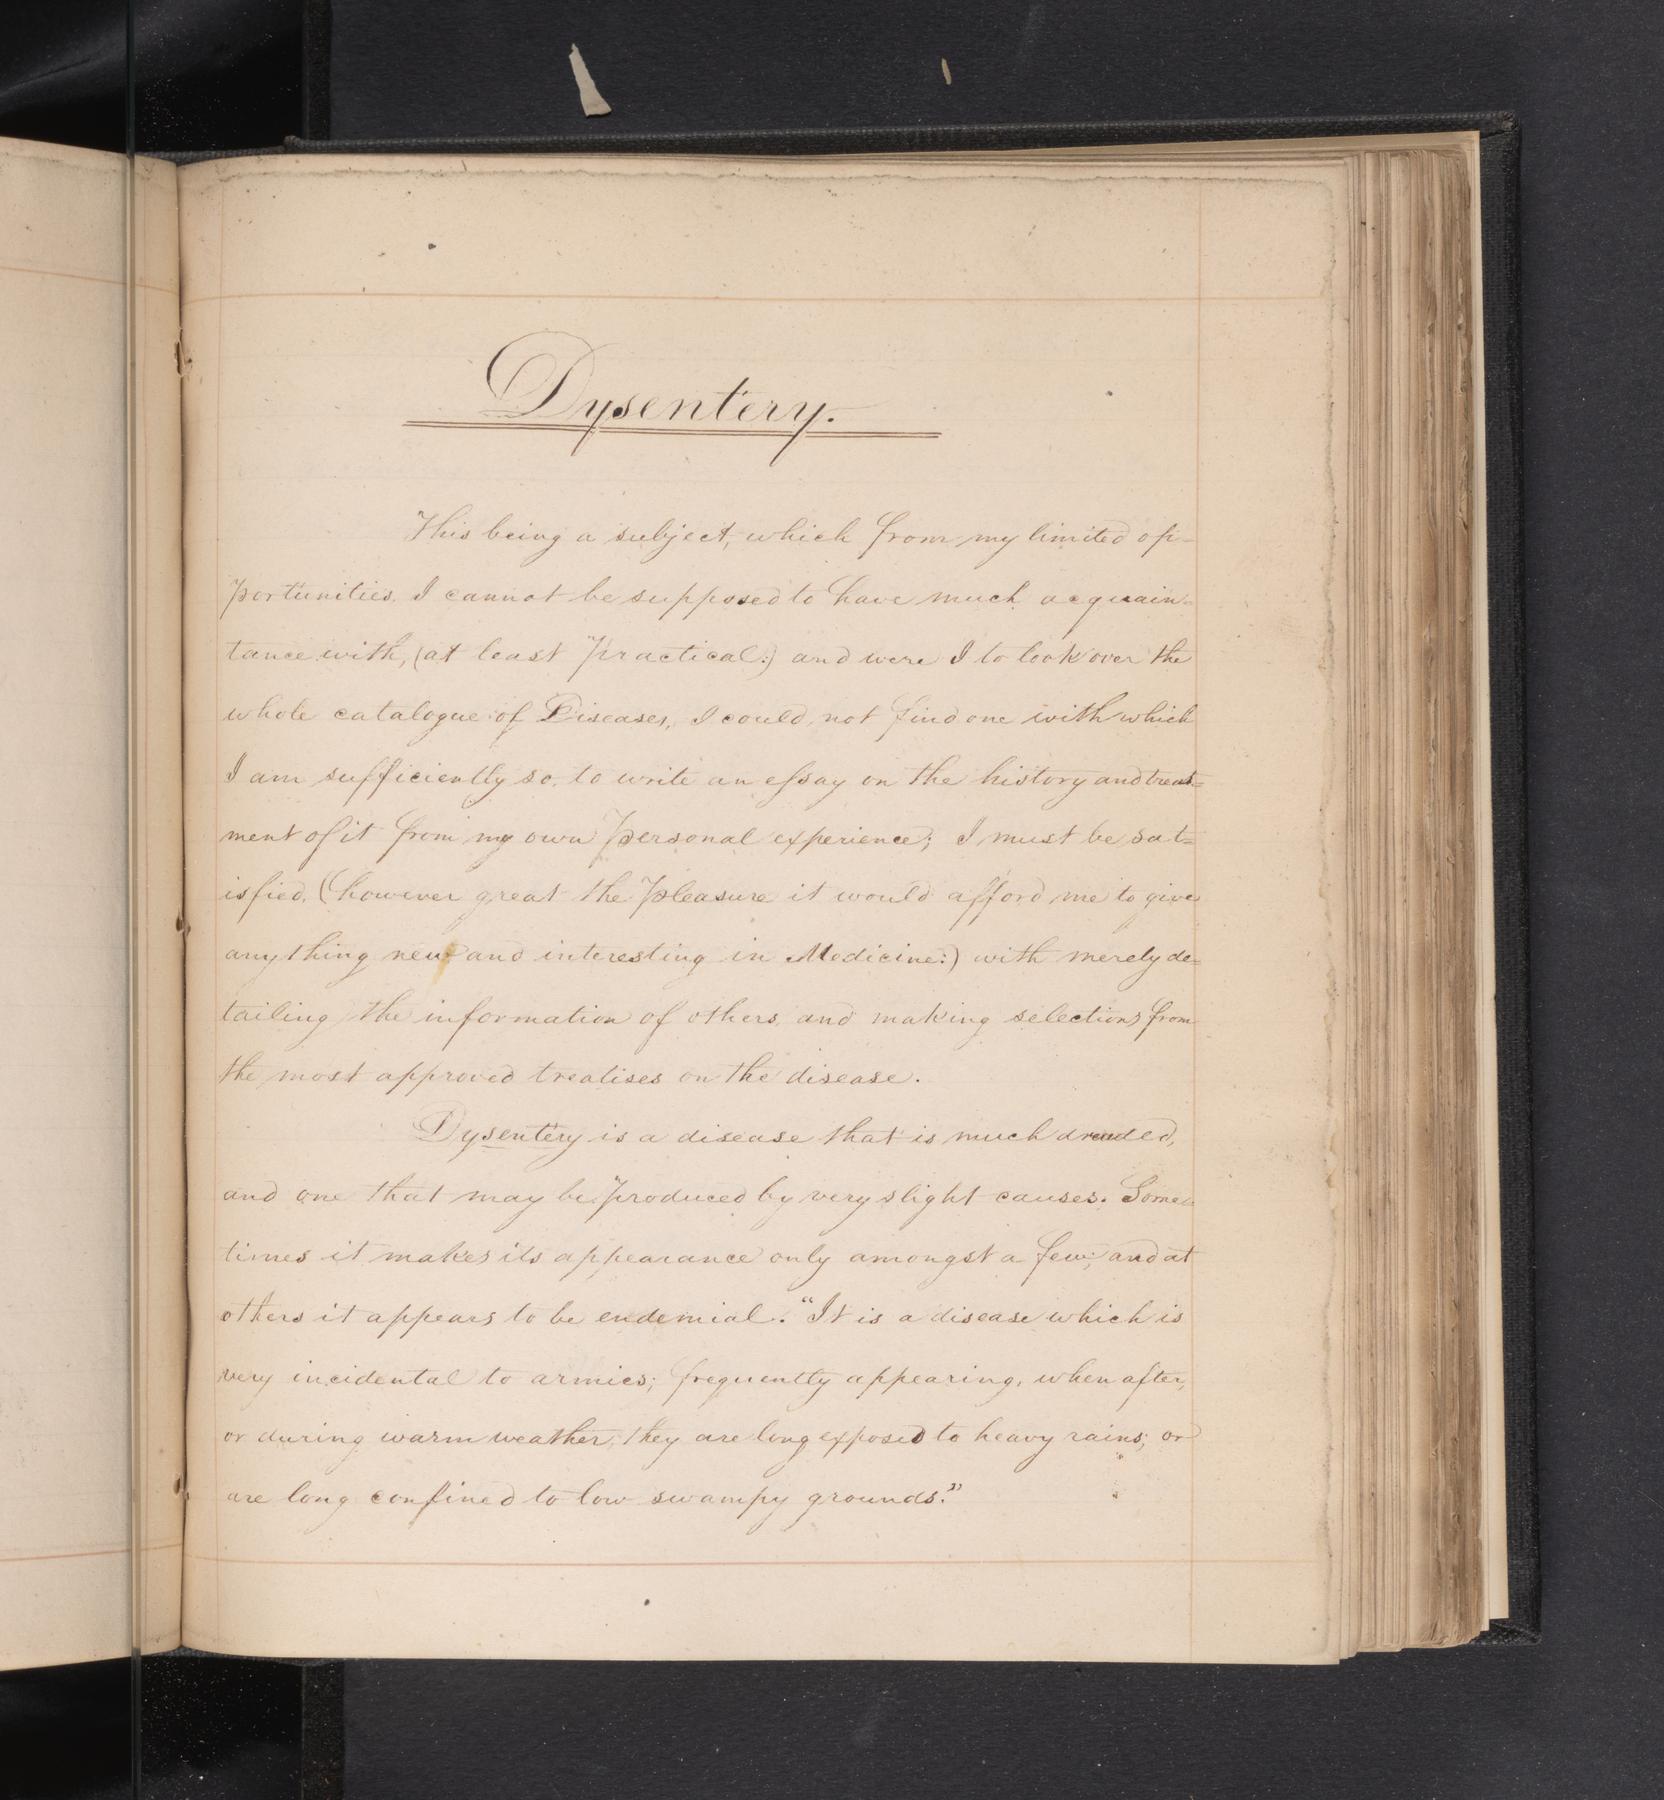 Dysentery.
This being a subject, which from my limited op-
portunities. I cannot be supposed to have much acquain-
tance with, (at least Practical:) and were I to look over the
whole catalogue of Diseases, I could not find one with which
I am sufficiently so, to write an essay on the history and treat=
ment of it from my own Personal experience; I must be sat=
isfied, (however great the Pleasure it would afford me to give
any thing new and interesting in Medicine:) with merely de=
tailing the information of others, and making selections from
the most approved treatises on the disease.
Dysentery is a disease that is much dreaded,
and one that may be Produced by very slight causes. Some=
times it makes its appearance only amongst a few; and at
others it appears to be endemial. "It is a disease which is
very incidental to armies; frequently appearing, when after,
or during warm weather, they are long exposed to heavy rains; or
are long confined to low swampy grounds."